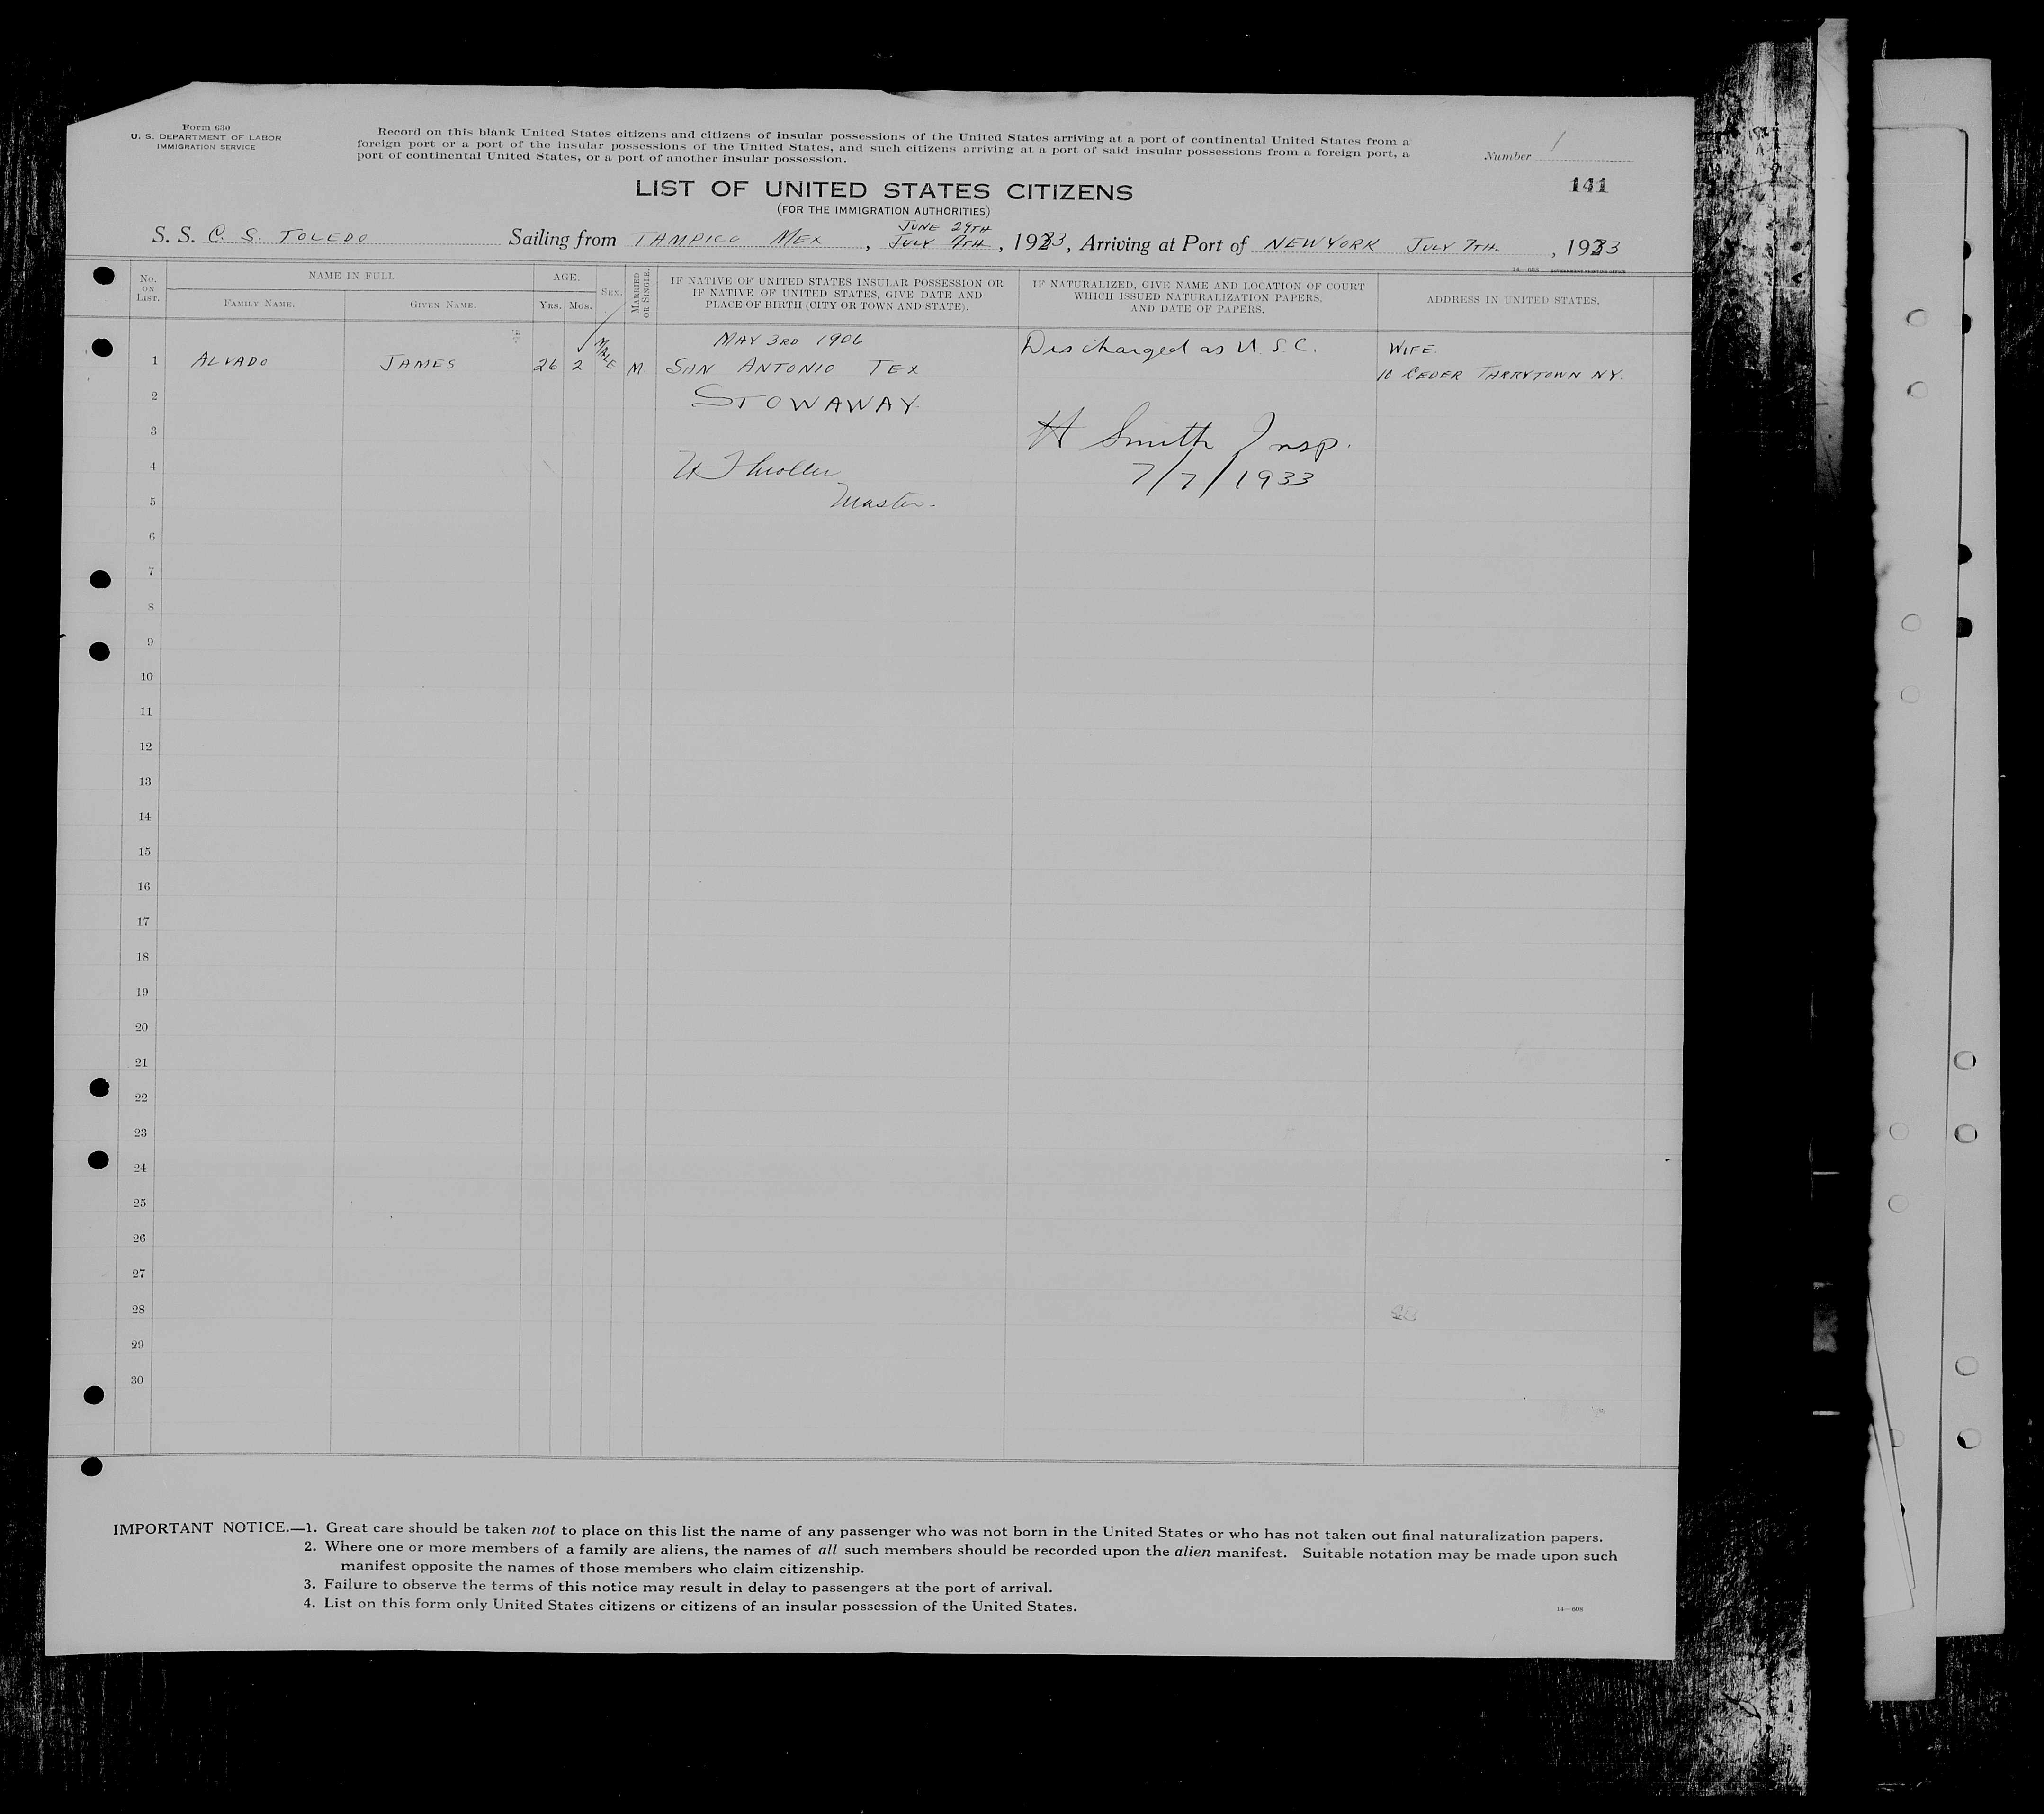 Form 630
U. S. DEPARTMENT OF LABOR
IMMIGRATION SERVICE
Record on this blank United States citizens and citizens of insular possessions of the United States arriving at a port of continental United States from a
foreign port or a port of the insular possessions of the United States, and such citizens arriving at a port of said insular possessions from a foreign port, a
port of continental United States, or a port of another insular possession.
Number 1
141
LIST OF UNITED STATES CITIZENS
(FOR THE IMMIGRATION AUTHORITIES)
JUNE 29TH
S. S. C. S. TOLEDO Sailing from TAMPICO MEX , JULY 7TH , 1933, Arriving at Port of NEW YORK JULY 7TH. , 1933
14—608 GOVERNMENT PRINTING OFFICE
No. ON LIST.
NAME IN FULL
FAMILY NAME.
GIVEN NAME.
AGE.
YRS. MOS.
SEX.
MARRIED OR SINGLE.
IF NATIVE OF UNITED STATES INSULAR POSSESSION OR
IF NATIVE OF UNITED STATES, GIVE DATE AND
PLACE OF BIRTH (CITY OR TOWN AND STATE).
IF NATURALIZED, GIVE NAME AND LOCATION OF COURT
WHICH ISSUED NATURALIZATION PAPERS,
AND DATE OF PAPERS.
ADDRESS IN UNITED STATES.
MAY 3RD 1906 Discharged as U.S.C. WIFE.
1 ALVADO JAMES 26 2 MALE M SAN ANTONIO TEX 10 CEDER TARRYTOWN NY.
2 STOWAWAY
3 H Smith Insp.
4 7/7/1933
5 Master.
6
7
8
9
10
11
12
13
14
15
16
17
18
19
20
21
22
23
24
25
26
27
28
29
30
IMPORTANT NOTICE.—1. Great care should be taken not to place on this list the name of any passenger who was not born in the United States or who has not taken out final naturalization papers.
2. Where one or more members of a family are aliens, the names of all such members should be recorded upon the alien manifest. Suitable notation may be made upon such
manifest opposite the names of those members who claim citizenship.
3. Failure to observe the terms of this notice may result in delay to passengers at the port of arrival.
4. List on this form only United States citizens or citizens of an insular possession of the United States.
14—608